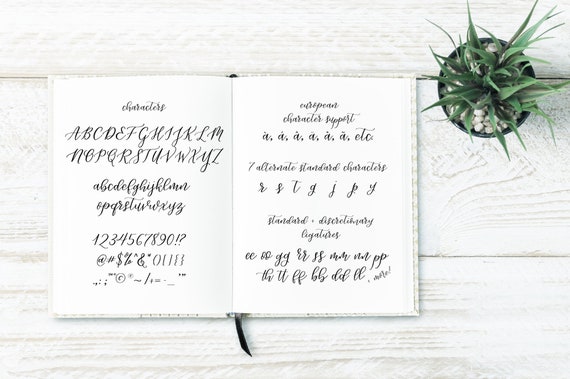 characters
ABCDEFGHIJKLM
NOPQRSTUVWXYZ
abcdefghijklmn
opqrstuvwxyz
1234567890!?
@#$%^&*()[]{}
.,:;"©~/+=-_'"
european
character support
à, á, â, ã, ä, å, etc.
7 alternate standard characters
r s t g j p y
standard + discretionary
ligatures
ee oo gg rr ss mm nn pp
th tt ff bb dd ll, more!